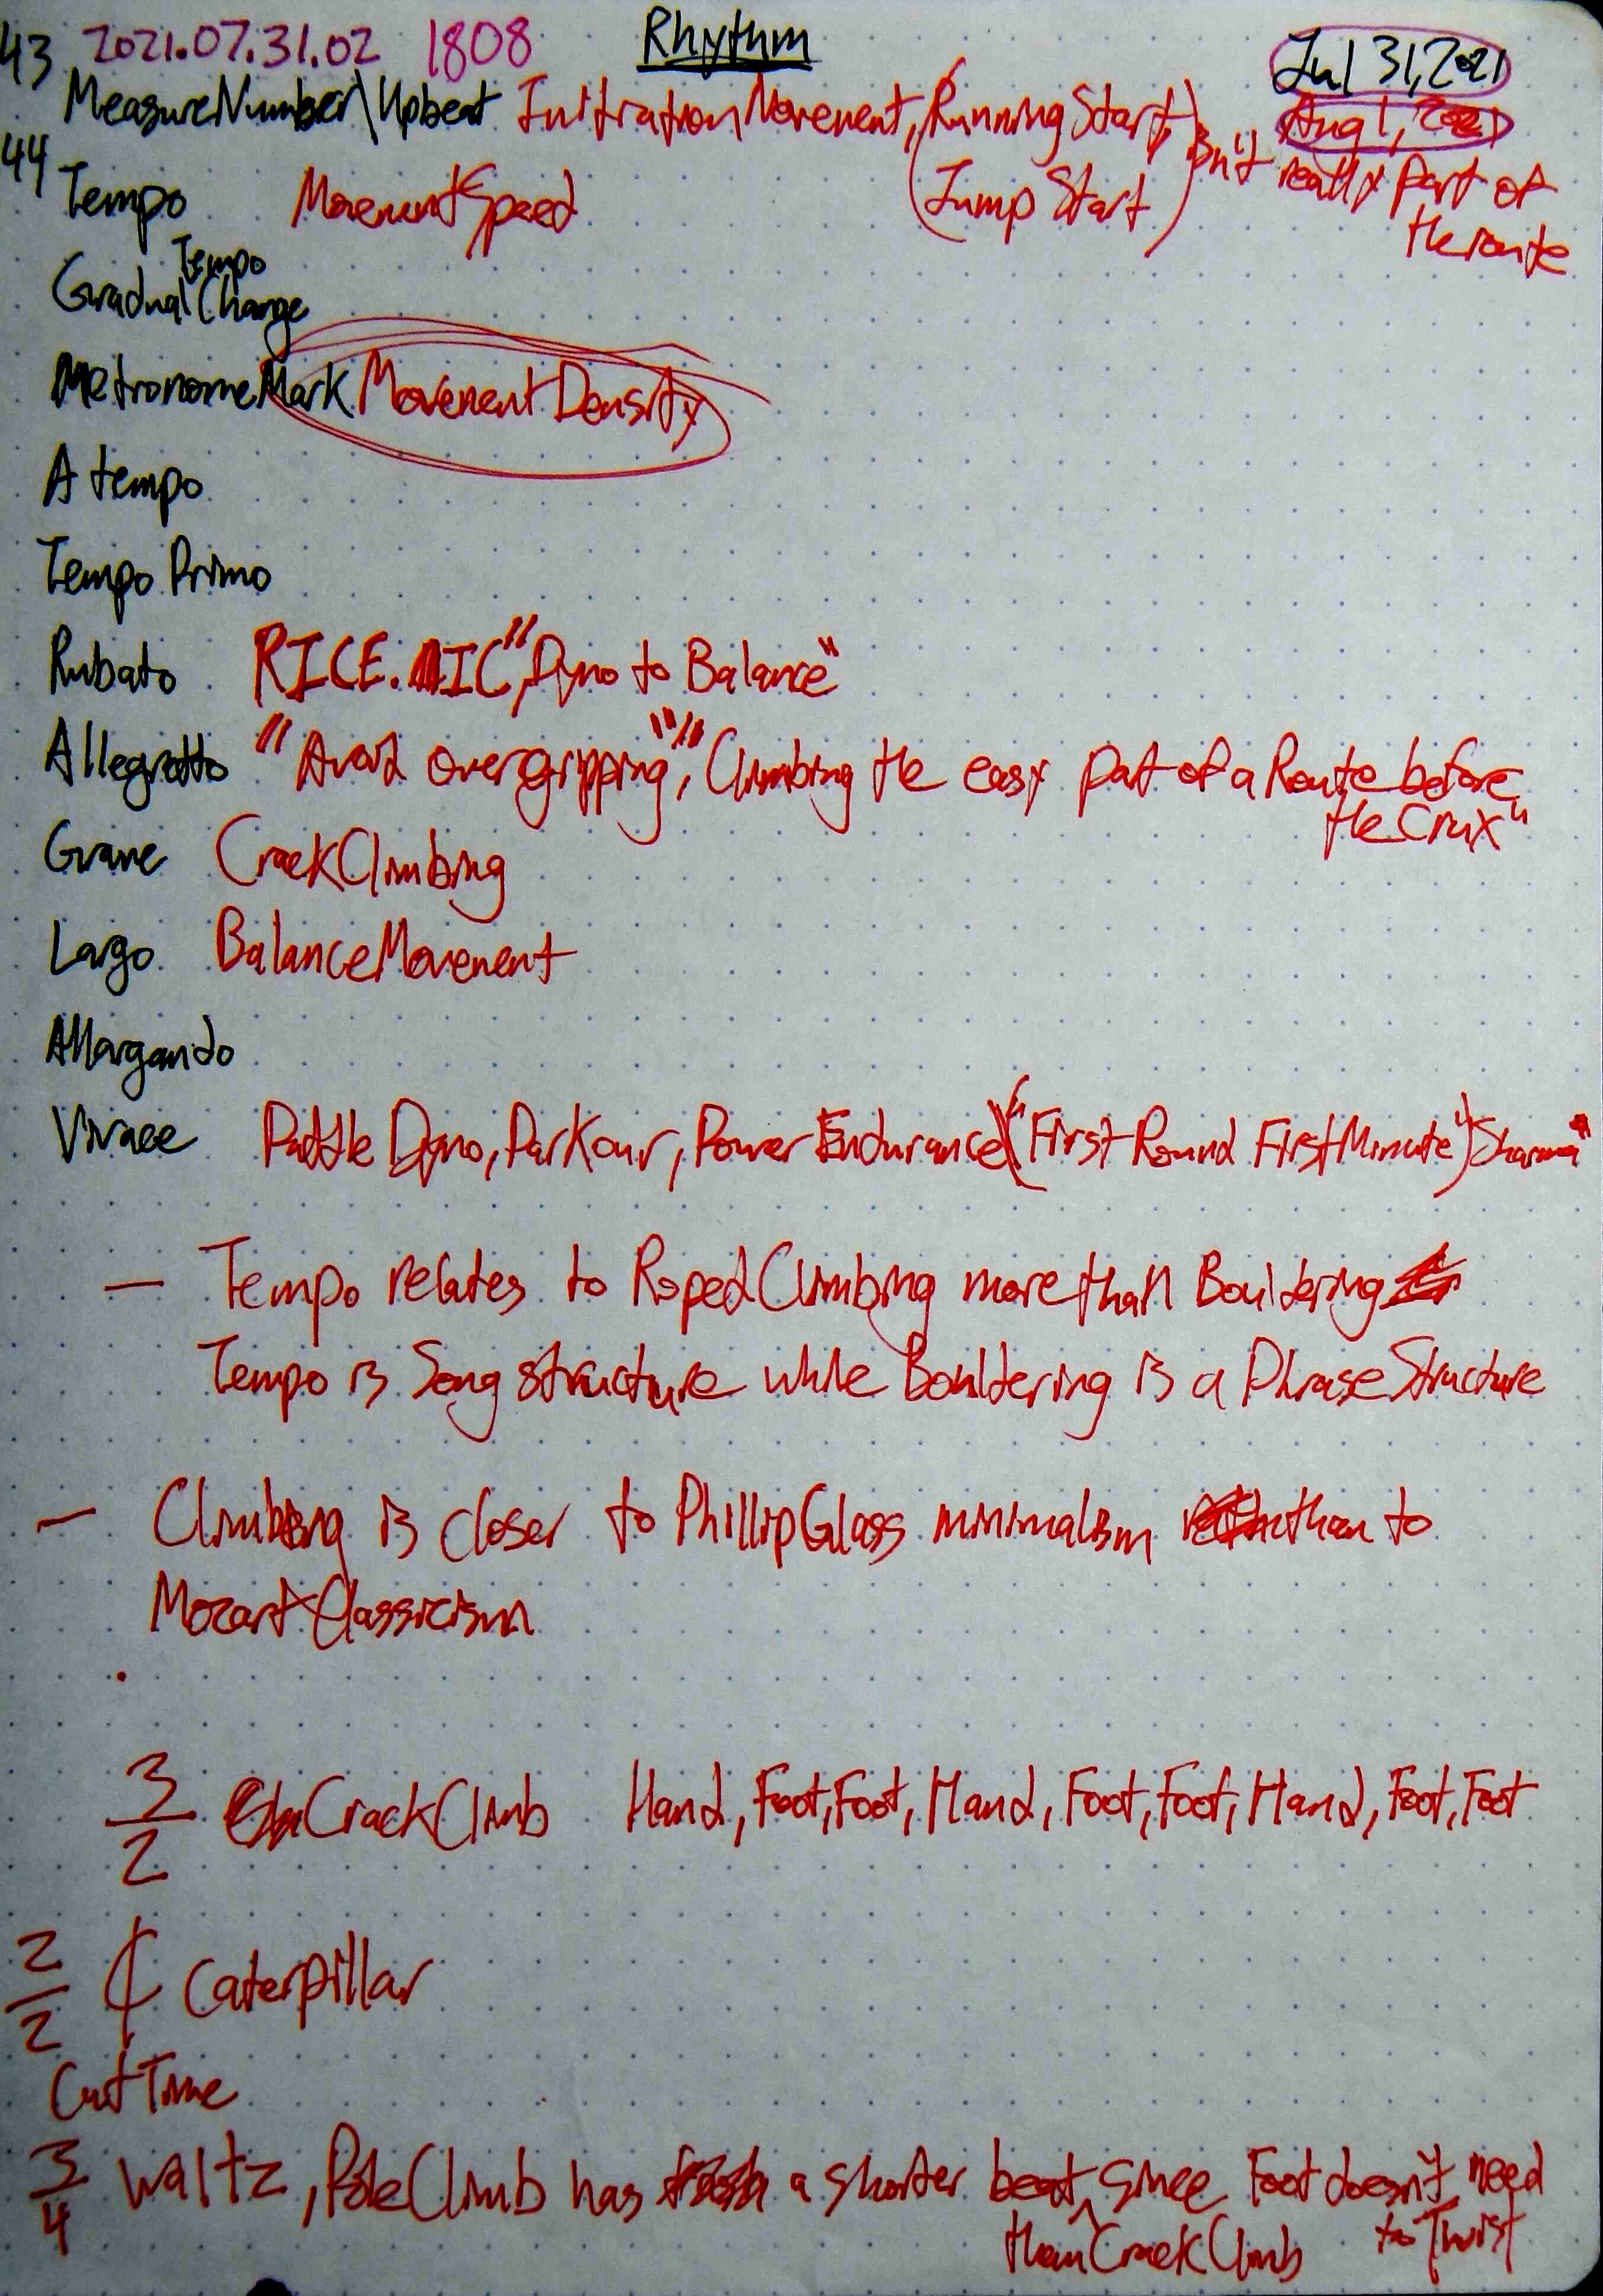 43 2021.07.31.02 1808 Rhythm Jul 31, 2021
MeasureNumber\Upbeat Initiation Movement, (Running Start, Aug 1, 2021
44 Tempo MovementSpeed Jump Start) Isn't really part of
the route
Tempo
Gradual Change
MetronomeMark MovementDensity
A tempo
Tempo Primo
Rubato RICE. IC, "Dyno to Balance"
Allegretto "Avoid overgripping", "Climbing the easy part of a Route before
the Crux"
Grave CrackClimbing
Largo BalanceMovement
Allargando
Vivace Paddle Dyno, Parkour, Power Endurance ("First Round First Minute") Sharma"
— Tempo relates to RopedClimbing more than Bouldering
Tempo is Song structure while Bouldering is a PhraseStructure
— Climbing is closer to PhillipGlass minimalism than to
Mozart Classicism
3/2 CrackClimb Hand, Foot, Foot, Hand, Foot, Foot, Hand, Foot, Foot
2/2 ¢ Caterpillar
Cut Time
3/4 Waltz, PoleClimb has a shorter beat, since Foot doesn't need
than CrackClimb to Twist